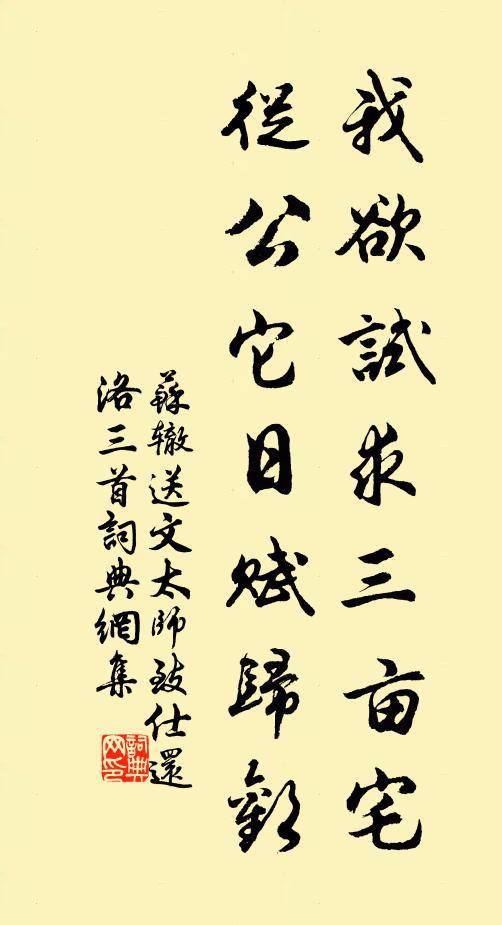 我欲試求三亩宅
從公它日賦歸歟
蘇辙送文太師致仕還
洛三首詞典網集
詞典
网印